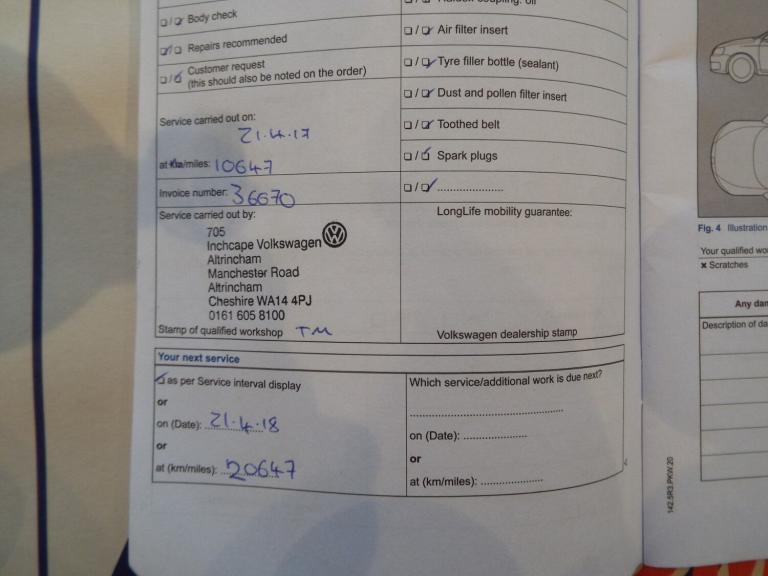 Body check
Repairs recommended
Customer request
(this should also be noted on the order)
Service carried out on:
21.4.17
at km/miles: 10647
Invoice number: 36670
Service carried out by:
705
Inchcape Volkswagen
Altrincham
Manchester Road
Altrincham
Cheshire WA14 4PJ
0161 605 8100
Stamp of qualified workshop TM
Air filter insert
Tyre filler bottle (sealant)
Dust and pollen filter insert
Toothed belt
Spark plugs
LongLife mobility guarantee:
Volkswagen dealership stamp
Your next service
as per Service interval display
or
on (Date): 21.4.18
or
at (km/miles): 20647
Which service/additional work is due next?
on (Date):
or
at (km/miles):
Fig. 4 Illustration
Your qualified
Scratches
Any
Description of
142.5R3.PKW.20